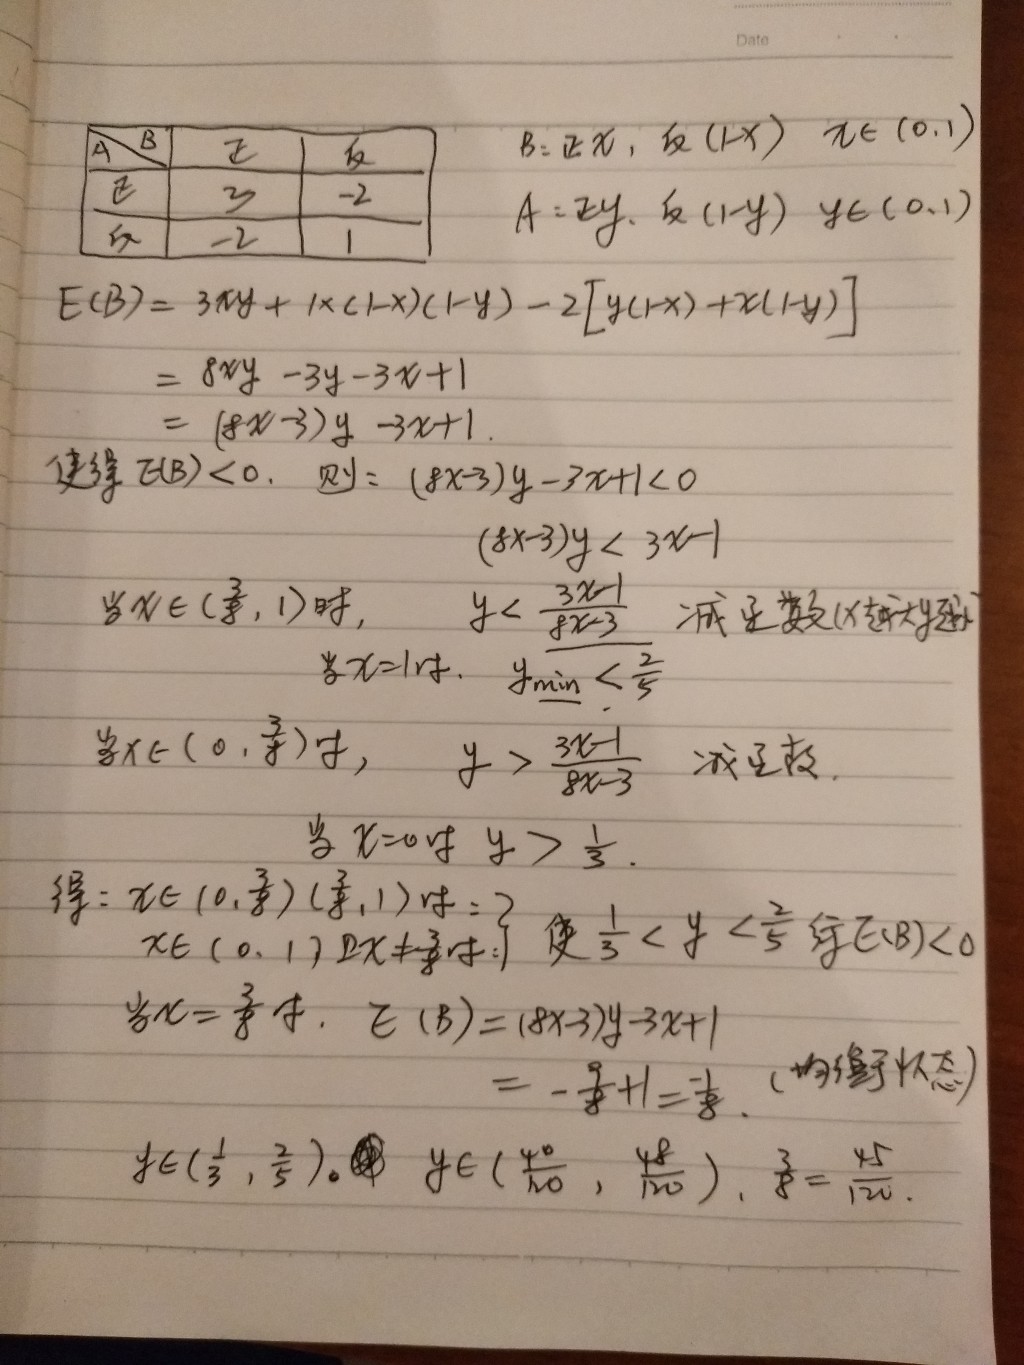 Date
A B 正 反
正 3 -2
反 -2 1
B: 正x, 反(1-x) x∈(0,1)
A: 正y. 反(1-y) y∈(0,1)
E(B)= 3xy + 1×(1-x)(1-y) -2[y(1-x)+x(1-y)]
= 8xy -3y -3x+1
= (8x-3)y -3x+1.
使得 E(B)<0. 则: (8x-3)y-3x+1<0
(8x-3)y < 3x-1
当x∈(3/8, 1)时, y< (3x-1)/(8x-3) 减函数(x越大y越小
当x=1时. ymin < 2/5
当x∈(0, 3/8)时, y > (3x-1)/(8x-3) 减函数.
当 x=0时 y > 1/3.
得: x∈(0,3/8)(3/8,1)时:
x∈(0,1)且x≠3/8时: } 使 1/3 < y < 2/5 E(B)<0
当x=3/8时. E(B)=(8x-3)y-3x+1
= -9/8+1=-1/8. (均衡状态)
y∈(1/3, 2/5). y∈(40/120, 48/120), 3/8=45/120.